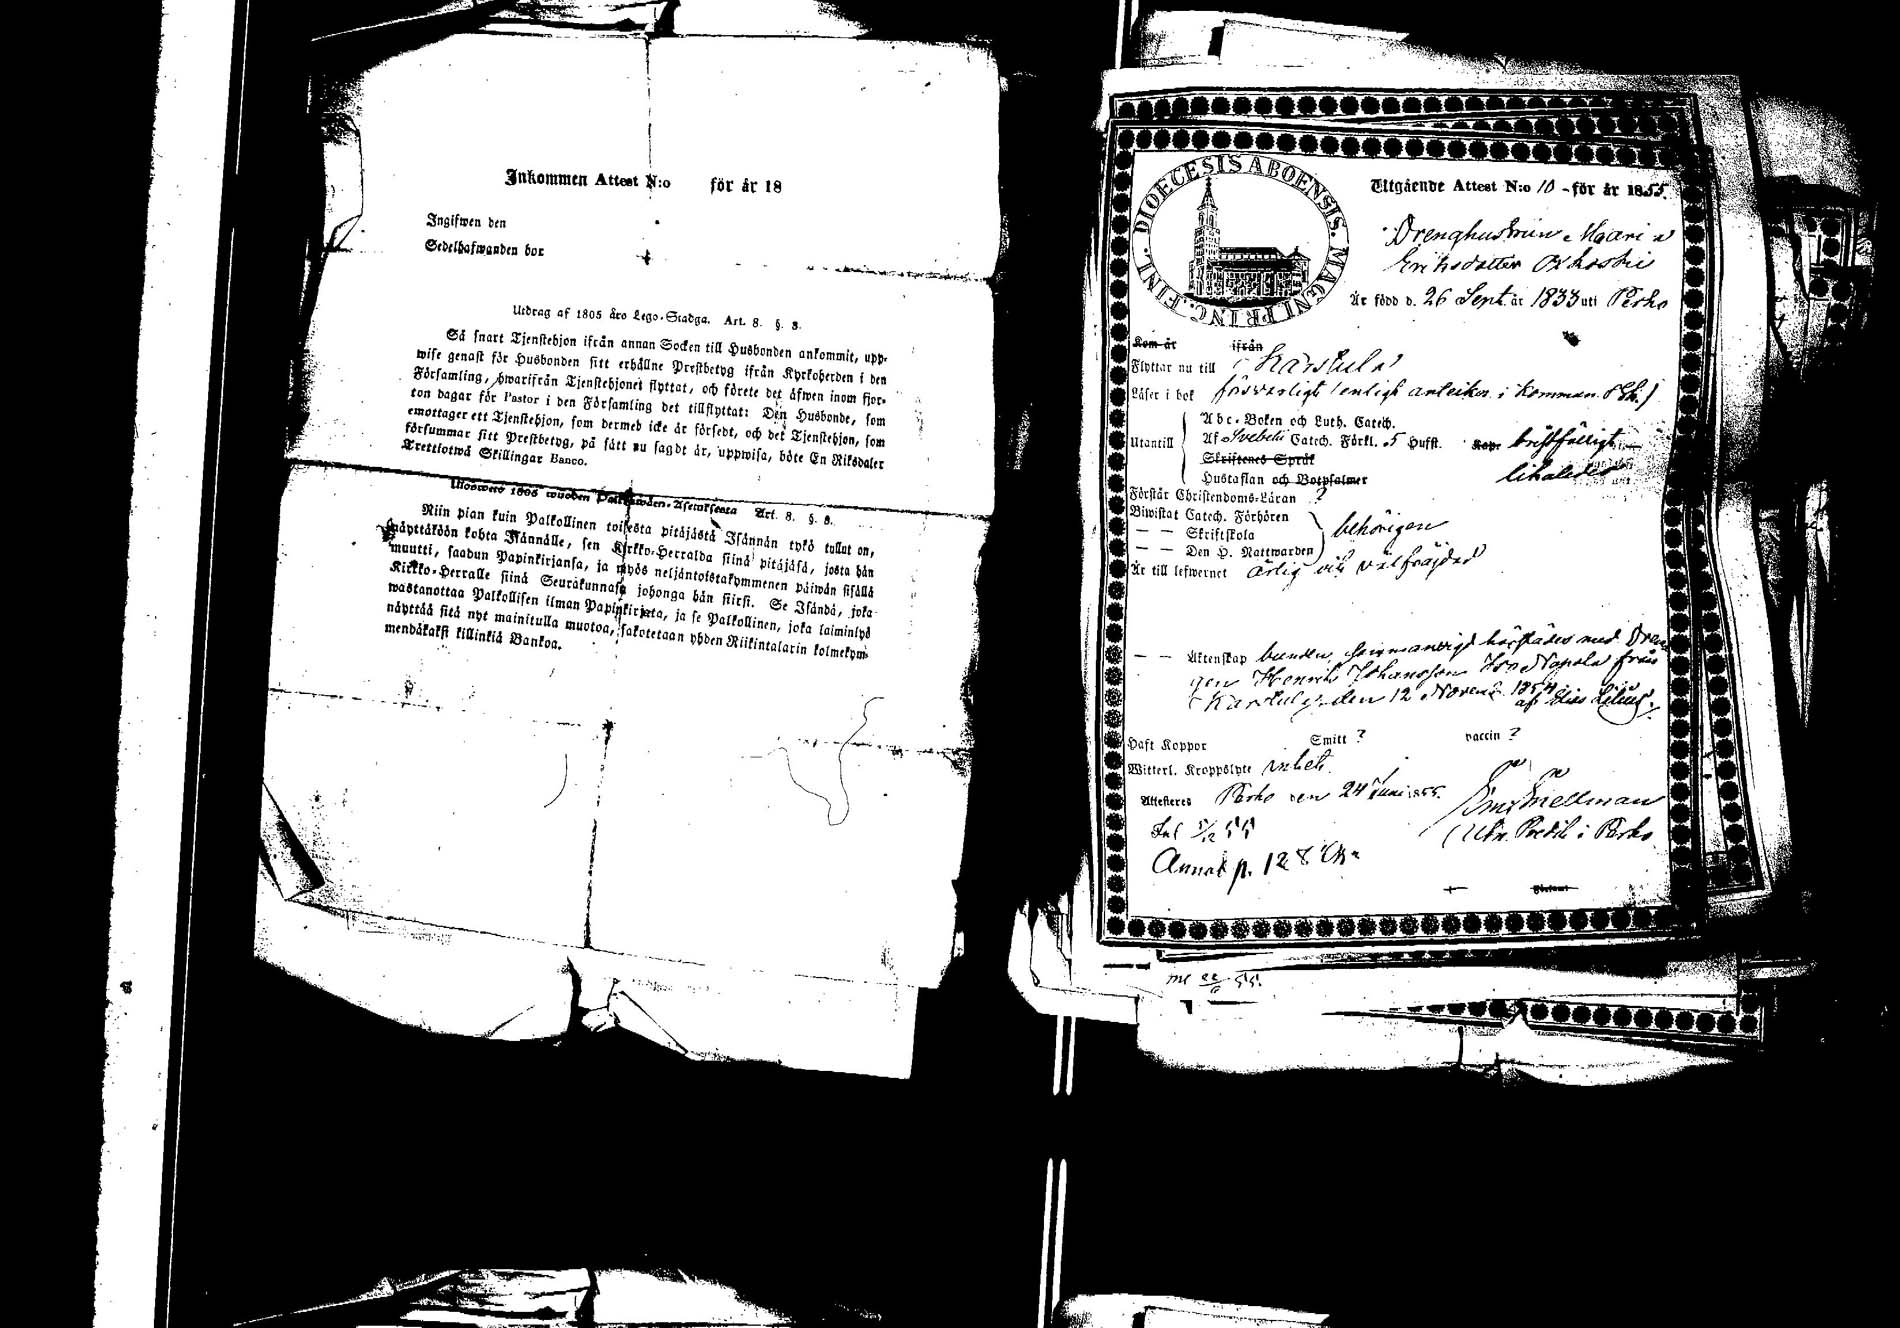 Inkommen Attest N:o för år 18
Ingifwen den
Sedelhafwanden bor
Utdrag af 1805 års Lego-Stadga. Art. 8. §. 8.
Så snart Tjenstehjon ifrån annan Socken till Husbonden ankommit, upp-
wise genast för Husbonden sitt erhållne Prestbetyg ifrån Kyrkoherden i den
Församling, hwarifrån Tjenstehjonet flyttat, och förete det äfwen inom fjor-
ton dagar för Pastor i den Församling det tillflyttat: Den Husbonde, som
emottager ett Tjenstehjon, som dermed icke är försedt, och det Tjenstehjon, som
försummar sitt Prestbetyg, på sätt nu sagdt är, uppwisa, böte En Riksdaler
Trettiotwå Skillingar Banco.
Ulosweto 1805 wuoden Palkkawäen-Asetuksesta Art. 8. §. 8.
Niin pian kuin Palkollinen toisesta pitäjästä Isännän tykö tullut on,
näyttäköön kohta Isännälle, sen Kirkko-Herralda siinä pitäjäsä, josta hän
muutti, saadun Papinkirjansa, ja myös neljäntoistakymmenen päiwän sisällä
Kirkko-Herralle siinä Seurakunnasa johonga hän siirsi. Se Isändä, joka
wastanottaa Palkollisen ilman Papinkirjata, ja se Palkollinen, joka laiminlyö
näyttää sitä nyt mainitulla muotoa, sakotetaan yhden Riikintalarin kolmekym-
mendäkaksi killinkiä Bankoa.
DIOECESIS ABOENSIS. MAGNI PRINC. FINL.
Utgående Attest N:o 10 - för år 1855.
Drenghustrun Maria
Eriksdotter
Är född d. 26 Sept. år 1833 uti Perho
Kom år ifrån
Flyttar nu till Karstula
Läser i bok försvarligt (enligt anteckn. i Komman. Bok.)
Utantill
Abc-Boken och Luth. Catech.
Af Svebelii Catech. Förkl. 5 Hufst. bristfälligt
Skriftenes Språk
Hustaflan och Botpsalmer likaledes
Förstår Christendoms-Läran ?
Biwistat Catech. Förhören
— — Skriftskola behörigen
— — Den H. Nattwarden
Är till lefwernet ärlig och välfräjdad
— — Äktenskap bunden, sammanvigd härstädes med Dren
gen Henrik Johansson från
Karstula, den 12 Novemb. 1854
af Elis Lilius.
Haft Koppor Smitt ? vaccin ?
Witterl. Kroppslyte
Attesteras Perho den 24 Juni 1855.
Snellman
i Perho
5/12 55
Annot p. 128
22/6 55.